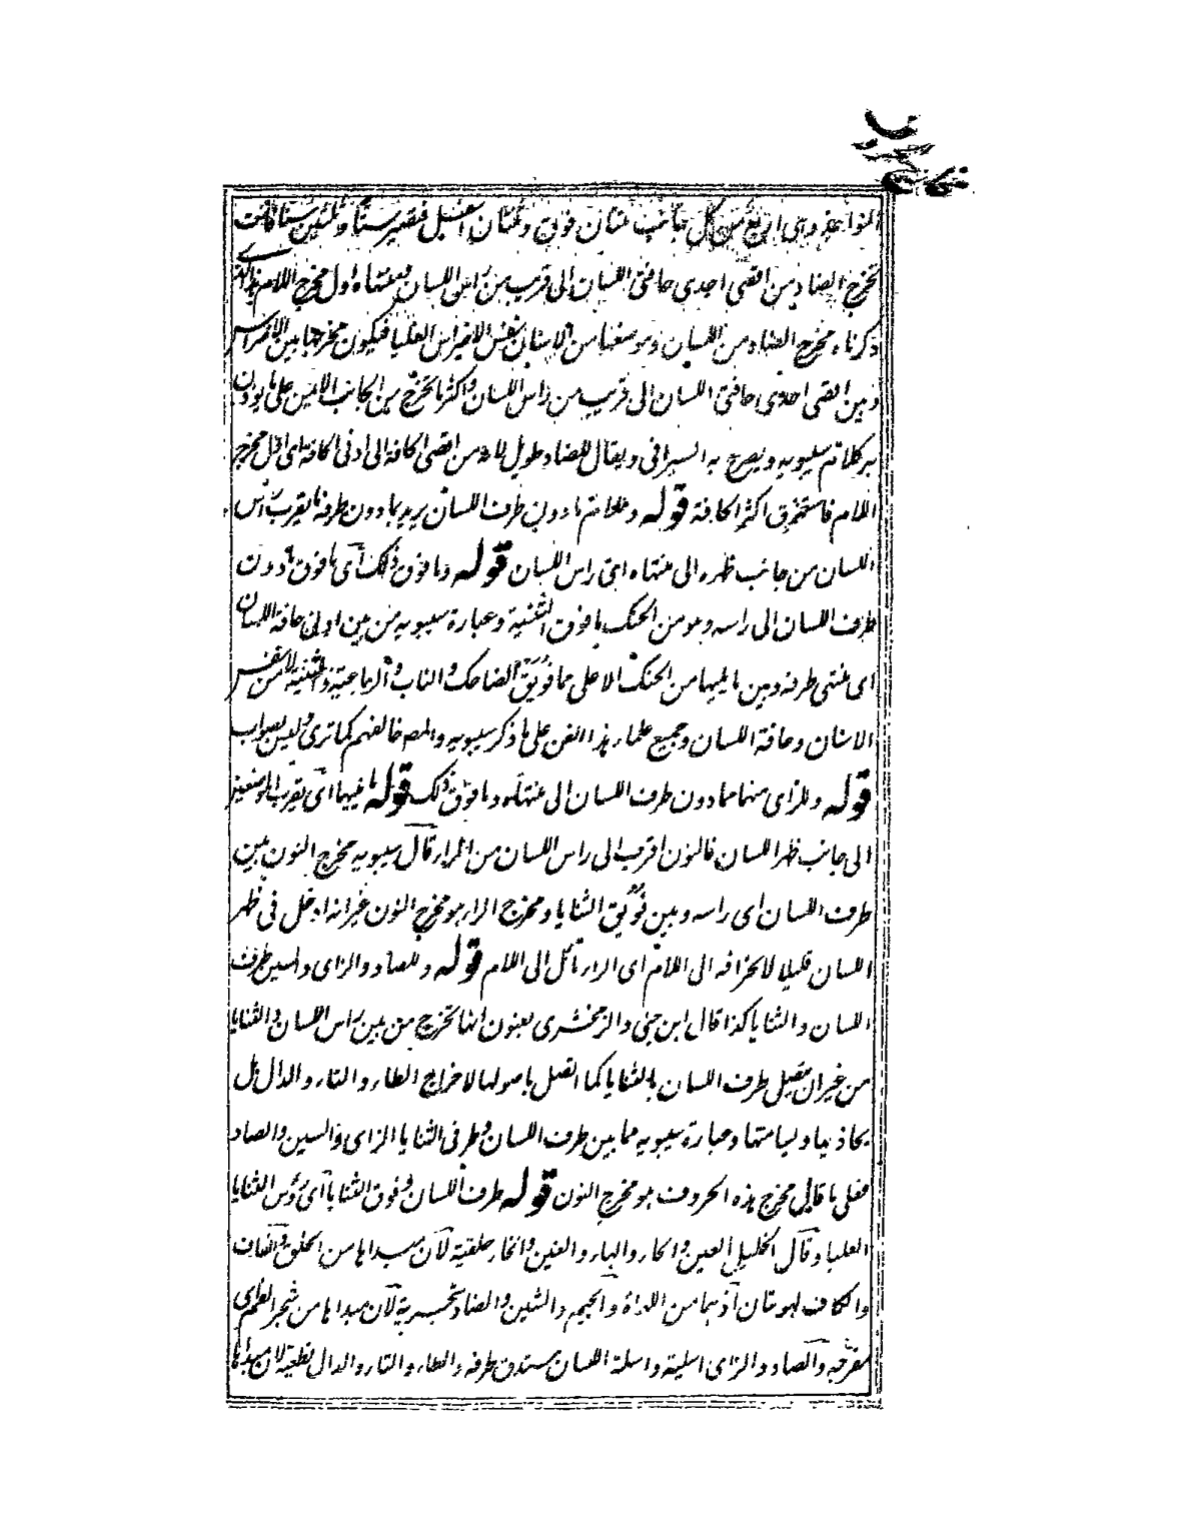 النواجذ وهى اربع من كل جانب ثنتان فوق وثنتان اسفل فيصير ستا وثلثين سنا قالت
تخرج الضاد من اقصى احدى حافتى اللسان الى قريب من راس اللسان ومنتهاه اول مخرج اللام هذا الذى
ذكرناه مخرج الضاد من اللسان وموضعها من الاسنان نفس الاضراس العليا فيكون مخرجها بين الاضراس
وبين اقصى احدى حافتى اللسان الى قريب من راس اللسان واكثر ما تخرج من الجانب الايمن على ما يوذن
به كلام سيبويه ويصرح به السيرافى ويقال للضاد طويل لانه من اقصى الحافة الى ادنى الحافة اى اول مخرج
اللام فاستغرق اكثر الحافة قوله وللام ما دون طرف اللسان يريد بما دون طرفه ما يقرب راس
اللسان من جانب ظهره الى منتهاه اى راس اللسان قوله وما فوق ذلك اى ما فوق ما دون
طرف اللسان الى راسه وهو من الحنك ما فوق الثنية وعبارة سيبويه من بين ادنى حافة اللسان
اى منتهى طرفه وبين ما يليها من الحنك الاعلى مما فويق الضاحك والناب والرباعية والثنية لا من نفس
الاسنان وحافة اللسان وجميع علماء هذا الفن على ما ذكر سيبويه والمص خالفهم كما ترى وليس بصواب
قوله وللراى منهما ما دون طرف اللسان الى منتهاه وما فوق ذلك قوله ما يليها اى بقرب الموضعين
الى جانب ظهر اللسان فالنون اقرب الى راس اللسان من الراء قال سيبويه مخرج النون بين
طرف اللسان اى راسه وبين فويق الثنايا ومخرج الراء هو مخرج النون غير انه ادخل فى ظهر
اللسان قليلا لانحرافه الى اللام اى الراء مائل الى اللام قوله وللصاد والزاى والسين طرف
اللسان والثنايا كذا قال ابن جنى والزمخشرى يعنون انها تخرج من بين راس اللسان والثنايا
من غير ان يتصل طرف اللسان بالثنايا كما اتصل باصولها لاخراج الطاء والتاء والدال بل
يحاذيها ويسامتها وعبارة سيبويه مما بين طرف اللسان وطرفى الثنايا الزاى والسين والصاد
فعلى ما قال مخرج هذه الحروف هو مخرج النون قوله طرف اللسان وفوق الثنايا اى روس الثنايا
العليا وقال الخليل العين والحاء والهاء والغين والخاء حلقية لان مبداها من الحلق والقاف
والكاف لهويتان اذ هما من اللهاة والجيم والشين والضاد شجرية لان مبداها من شجر الفم اى
مفرجه والصاد والزاى اسلية واسلة اللسان مستدق طرفه والطاء والتاء والدال نطعية لان مبداها